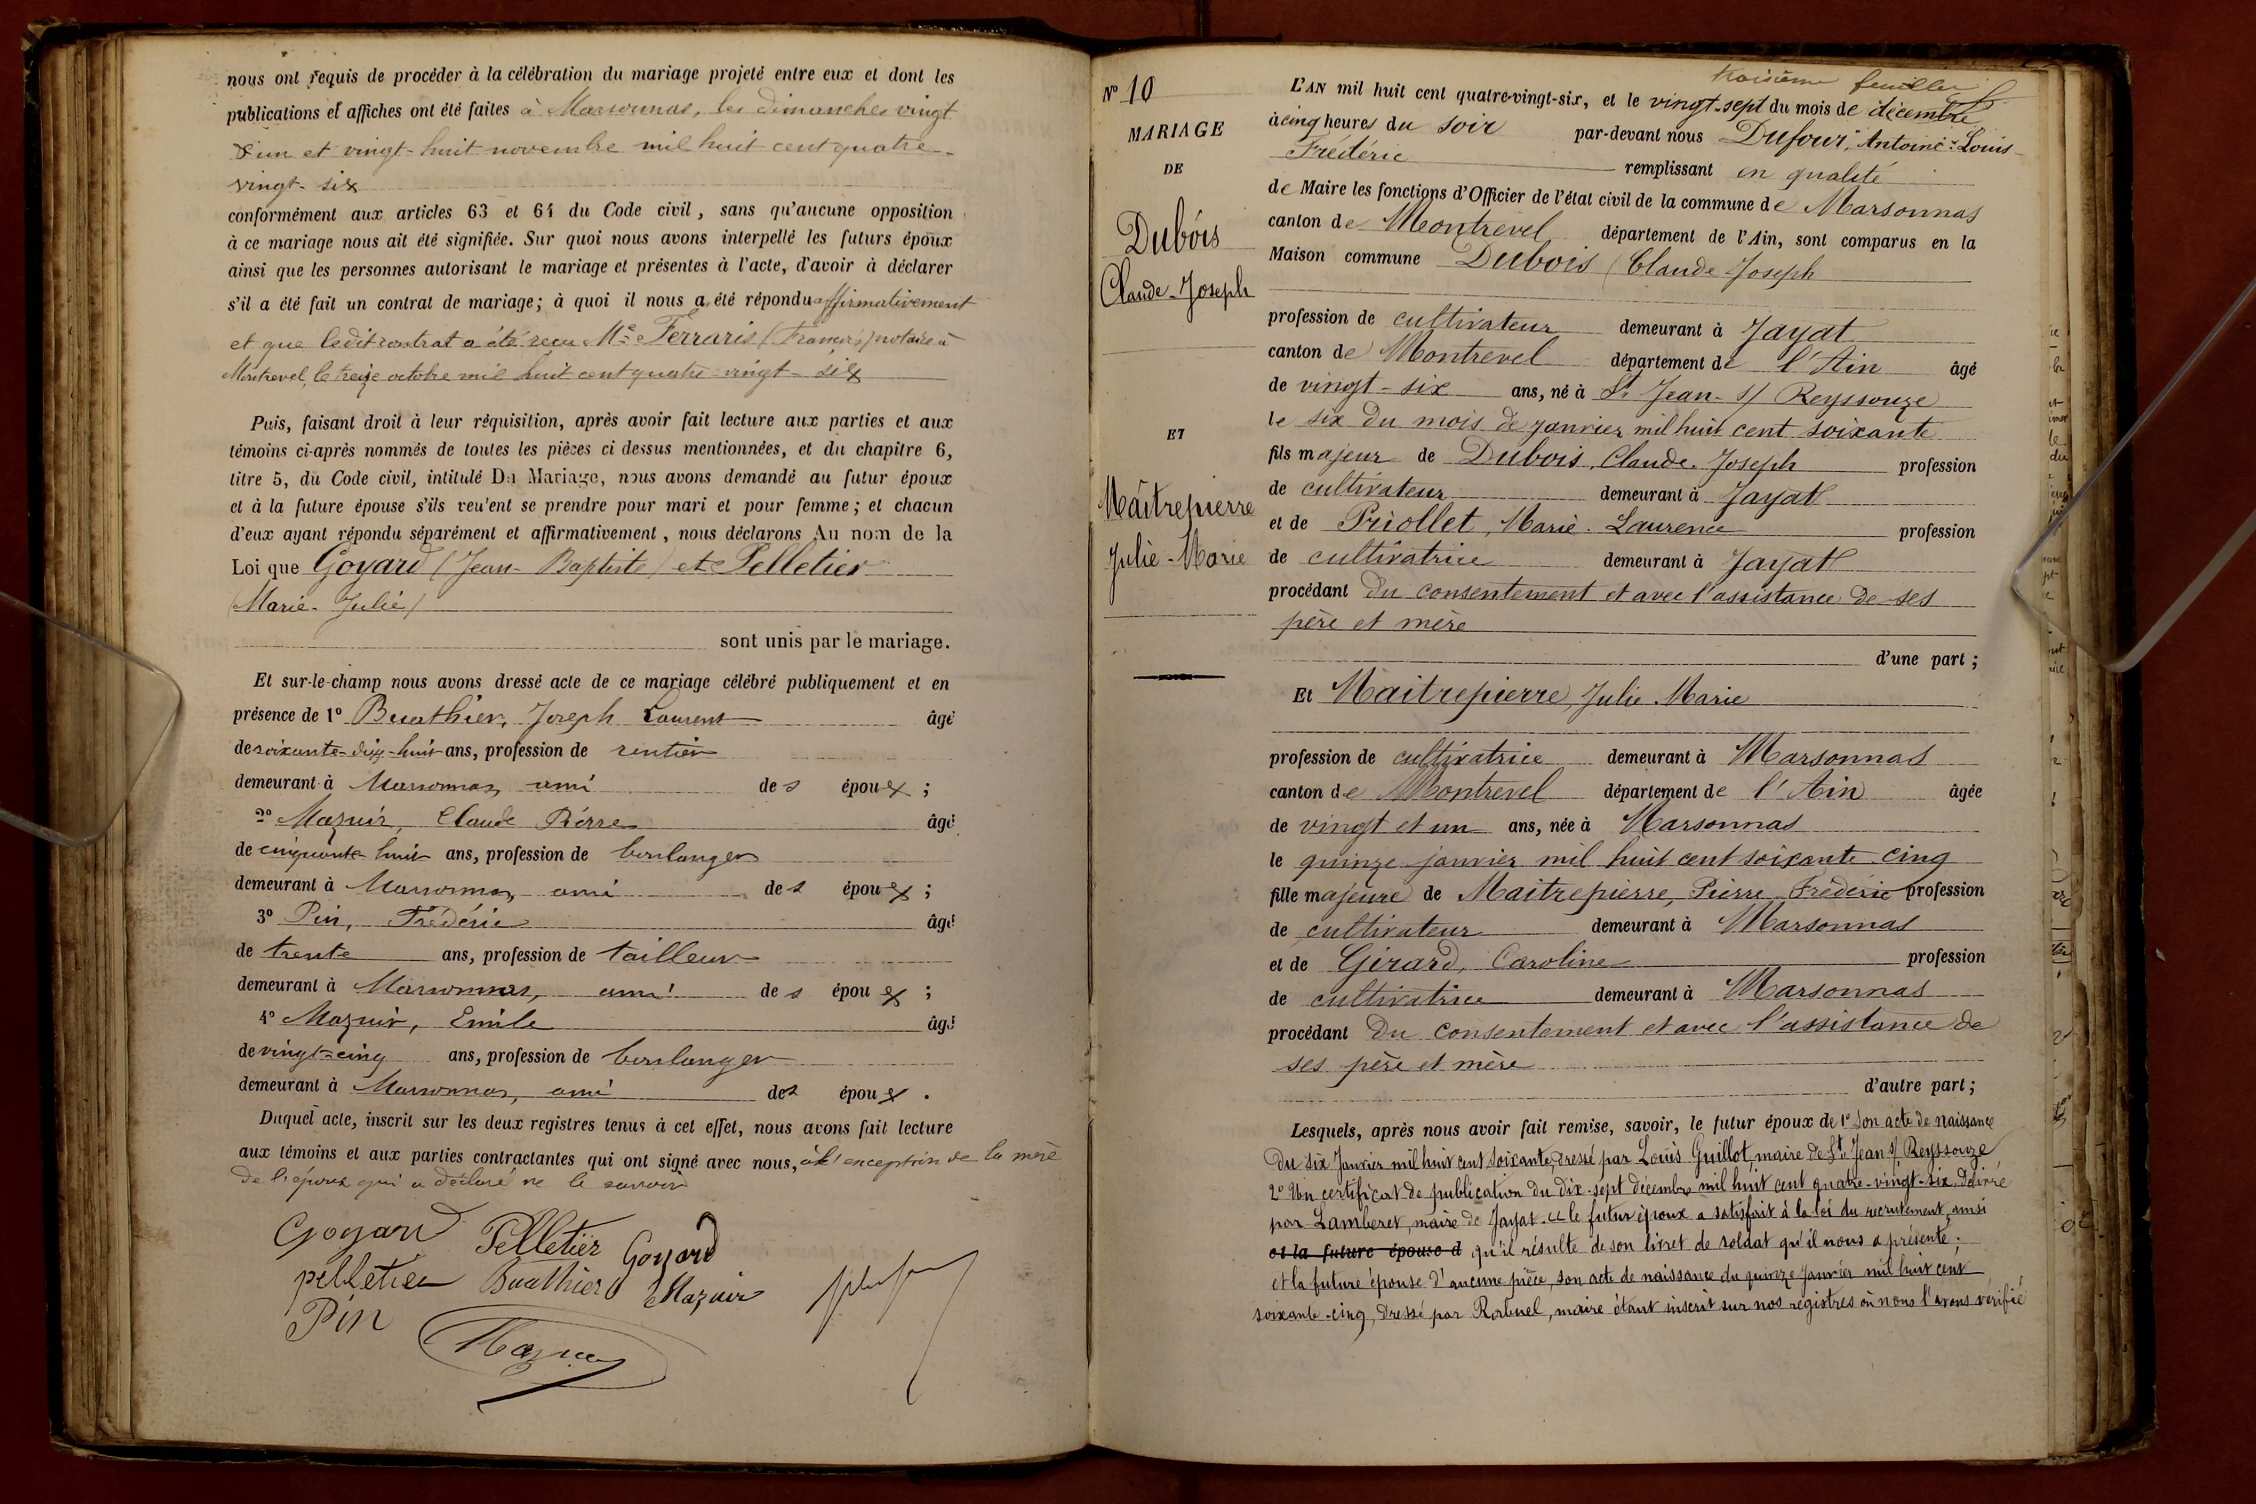 nous ont requis de procéder à la célébration du mariage projeté entre eux et dont les
publications et affiches ont été faites à Marsonnas, les dimanches vingt
& un et vingt-huit novembre mil huit cent quatre-
vingt-six
conformément aux articles 63 et 64 du Code civil, sans qu'aucune opposition
à ce mariage nous ait été signifiée. Sur quoi nous avons interpellé les futurs époux
ainsi que les personnes autorisant le mariage et présentes à l'acte, d'avoir à déclarer
s'il a été fait un contrat de mariage; à quoi il nous a été répondu affirmativement
et que ledit contrat a été recu Me Ferraris (François) notaire à
Montrevel, le treize octobre mil huit cent quatre-vingt-six
Puis, faisant droit à leur réquisition, après avoir fait lecture aux parties et aux
témoins ci-après nommés de toutes les pièces ci dessus mentionnées, et du chapitre 6,
titre 5, du Code civil, intitulé Du Mariage, nous avons demandé au futur époux
et à la future épouse s'ils veulent se prendre pour mari et pour femme; et chacun
d'eux ayant répondu séparément et affirmativement, nous déclarons Au nom de la
Loi que Goyard (Jean-Baptiste) et Pelletier
(Marie-Julie)
sont unis par le mariage.
Et sur-le-champ nous avons dressé acte de ce mariage célébré publiquement et en
présence de 1° Buathier, Joseph Laurent âgé
de soixante-dix-huit ans, profession de rentier
demeurant à Marsonnas, ami des époux;
2° Mazuir, Claude Pierre âgé
de cinquante huit ans, profession de boulanger
demeurant à Marsonnas, ami des époux;
3° Pin, Frédéric âgé
de trente ans, profession de tailleur
demeurant à Marsonnas, ami des époux;
4° Mazuir, Emile âgé
de vingt-cinq ans, profession de boulanger
demeurant à Marsonnas, ami des époux.
Duquel acte, inscrit sur les deux registres tenus à cet effet, nous avons fait lecture
aux témoins et aux parties contractantes qui ont signé avec nous, à l'exception de la mère
de l'époux qui a déclaré ne le savoir
Goyard Pelletier Goyard
pelletier Buathier Mazuir
Pin
Mazuir
troisième feuillet
N° 10
MARIAGE
DE
Dubois
Claude-Joseph
ET
Maîtrepierre
Julie-Marie
L'AN mil huit cent quatre-vingt-six, et le vingt-sept du mois de décembre
à cinq heures du soir par-devant nous Dufour, Antoine-Louis-
Frédéric remplissant en qualité
de Maire les fonctions d'Officier de l'état civil de la commune de Marsonnas
canton de Montrevel département de l'Ain, sont comparus en la
Maison commune Dubois (Claude Joseph
profession de cultivateur demeurant à Jayat
canton de Montrevel département de l'Ain âgé
de vingt-six ans, né à St Jean-s/ Reyssouze
le six du mois de janvier mil huit cent soixante
fils majeur de Dubois, Claude-Joseph profession
de cultivateur demeurant à Jayat
et de Priollet, Marie-Laurence profession
de cultivatrice demeurant à Jayat
procédant du consentement et avec l'assistance de ses
père et mère
d'une part;
Et Maitrepierre, Julie Marie
profession de cultivatrice demeurant à Marsonnas
canton de Montrevel département de l'Ain âgée
de vingt et un ans, née à Marsonnas
le quinze janvier mil huit cent soixante-cinq
fille majeure de Maitrepierre, Pierre-Frédéric profession
de cultivateur demeurant à Marsonnas
et de Girard, Caroline profession
de cultivatrice demeurant à Marsonnas
procédant du consentement et avec l'assistance de
ses père et mère
d'autre part;
Lesquels, après nous avoir fait remise, savoir, le futur époux de 1° son acte de naissance
du six Janvier mil huit cent soixante, dressé par Louis Guillot, maire de St Jean s/ Reyssouze
2° Un certificat de publication du dix-sept décembre mil huit cent quatre-vingt-six, délivré
par Lamberet, maire de Jayat. le futur époux a satisfait à la loi du recrutement, ainsi
et la future épouse d qu'il résulte de son livret de soldat qu'il nous a présenté;
et la future épouse d'aucune pièce, son acte de naissance du quinze janvier mil huit cent
soixante-cinq, dressé par maire étant inscrit sur nos registres où nous l'avons vérifié